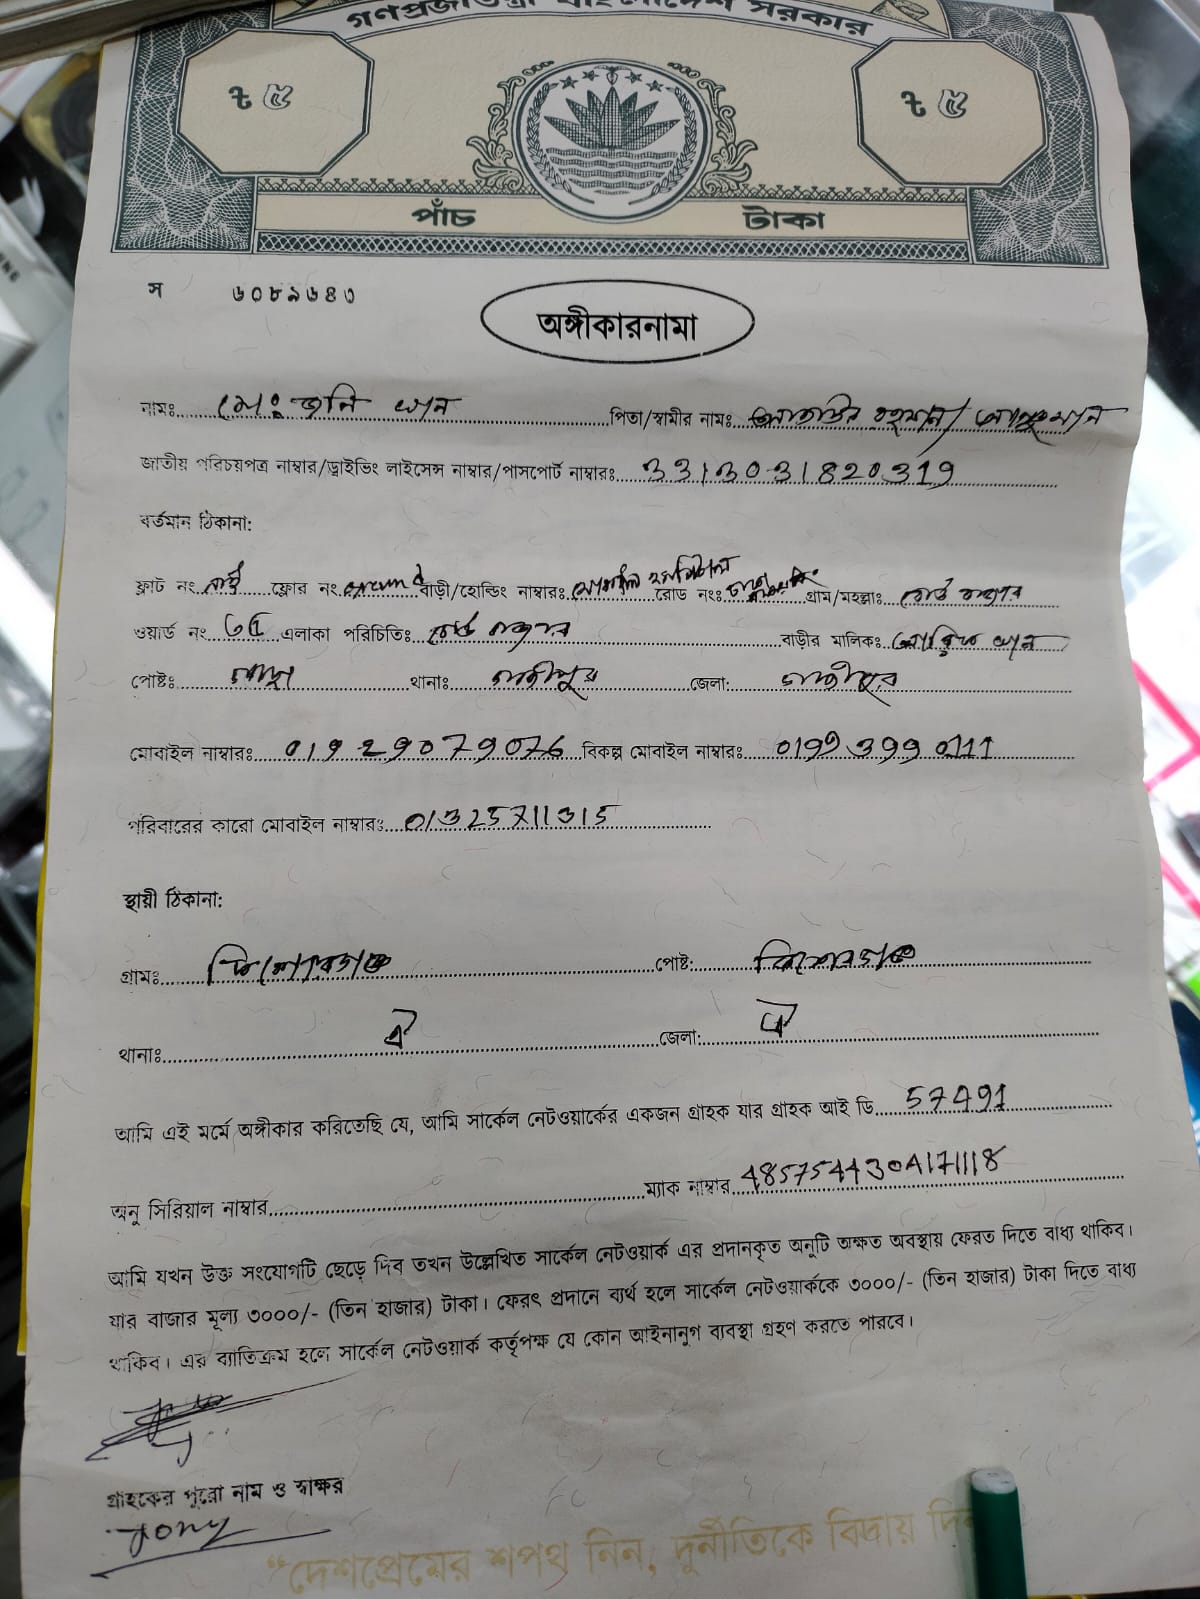 গণপ্রজাতন্ত্রী বাংলাদেশ সরকার
৳ ৫ ৳ ৫
পাঁচ টাকা
স ৬০৮৯৬৪৩
অঙ্গীকারনামা
নামঃ মোঃ জনি খান পিতা/স্বামীর নামঃ রহমান/
জাতীয় পরিচয়পত্র নাম্বার/ড্রাইভিং লাইসেন্স নাম্বার/পাসপোর্ট নাম্বারঃ 3313031820319
বর্তমান ঠিকানা:
ফ্লাট নং ফ্লোর নং বাড়ী/হোল্ডিং নাম্বারঃ রোড নংঃ গ্রাম/মহল্লাঃ বোর্ড বাজার
ওয়ার্ড নং ৩৫ এলাকা পরিচিতিঃ বোর্ড বাজার বাড়ীর মালিকঃ খান
পোষ্টঃ থানাঃ গাজীপুর জেলা: গাজীপুর
মোবাইল নাম্বারঃ 01929079076 বিকল্প মোবাইল নাম্বারঃ 01993990111
পরিবারের কারো মোবাইল নাম্বারঃ 01325711315
স্থায়ী ঠিকানা:
গ্রামঃ কিশোরগঞ্জ পোষ্ট: কিশোরগঞ্জ
থানাঃ ঐ জেলা: ঐ
আমি এই মর্মে অঙ্গীকার করিতেছি যে, আমি সার্কেল নেটওয়ার্কের একজন গ্রাহক যার গ্রাহক আই ডি 57491
অনু সিরিয়াল নাম্বার ম্যাক নাম্বার 485754430A171118
আমি যখন উক্ত সংযোগটি ছেড়ে দিব তখন উল্লেখিত সার্কেল নেটওয়ার্ক এর প্রদানকৃত অনুটি অক্ষত অবস্থায় ফেরত দিতে বাধ্য থাকিব।
যার বাজার মূল্য ৩০০০/- (তিন হাজার) টাকা। ফেরৎ প্রদানে ব্যর্থ হলে সার্কেল নেটওয়ার্ককে ৩০০০/- (তিন হাজার) টাকা দিতে বাধ্য
থাকিব। এর ব্যতিক্রম হলে সার্কেল নেটওয়ার্ক কর্তৃপক্ষ যে কোন আইনানুগ ব্যবস্থা গ্রহণ করতে পারবে।
গ্রাহকের পুরো নাম ও স্বাক্ষর
Jony
“দেশপ্রেমের শপথ নিন, দুর্নীতিকে বিদায় দিন